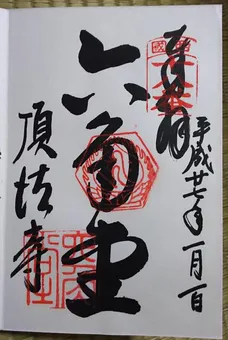 奉拝
平成廿七年一月一日
六角堂
頂法寺